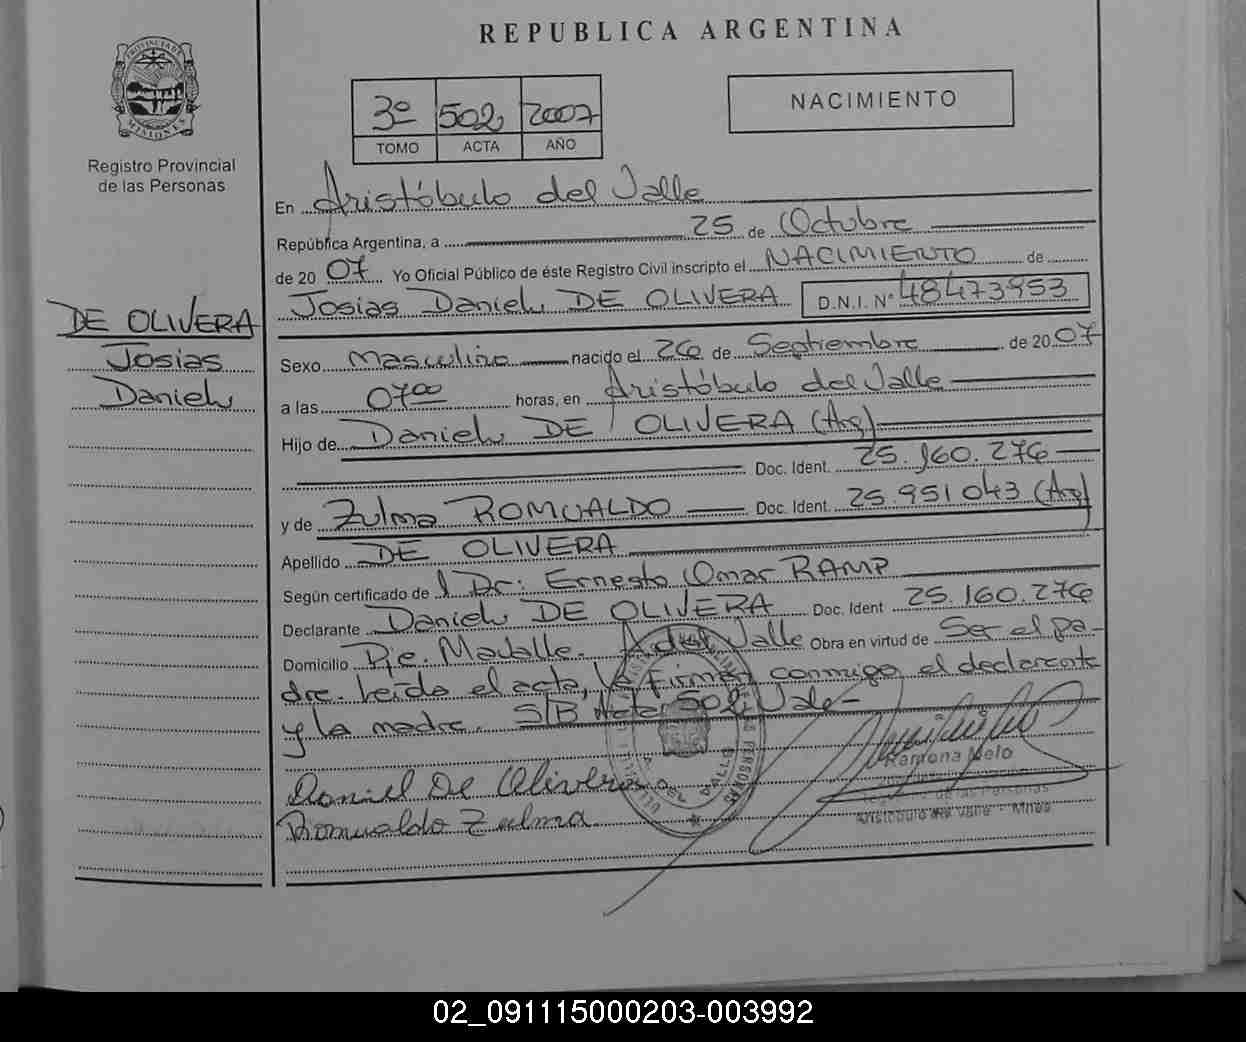 REPUBLICA ARGENTINA
PROVINCIA DE MISIONES
Registro Provincial
de las Personas
3º 502 2007
TOMO ACTA AÑO
NACIMIENTO
En Aristóbulo del Valle
República Argentina, a 25 de Octubre
de 2007 Yo Oficial Público de éste Registro Civil inscripto el NACIMIENTO de
Josias Daniel DE OLIVERA D.N.I. Nº 48473953
DE OLIVERA
Josias
Daniel
Sexo Masculino nacido el 26 de Septiembre de 2007
a las 0700 horas, en Aristóbulo del Valle
Hijo de Daniel DE OLIVERA (Arg)
Doc. Ident. 25.160.276
y de Zulma ROMUALDO Doc. Ident. 25.951043 (Arg)
Apellido DE OLIVERA
Según certificado de Dr: Ernesto Omar RAMP
Declarante Daniel DE OLIVERA Doc. Ident 25.160.276
Domicilio Pje. Valle Obra en virtud de Ser el pa-
dre. Leída el acta, la firman conmigo el declarante
y la madre. S/B Vale-
Daniel De Olivera
Romualdo Zulma
Ramona Melo
Registro de las Personas
Aristóbulo del Valle - Mnes
02_091115000203-003992